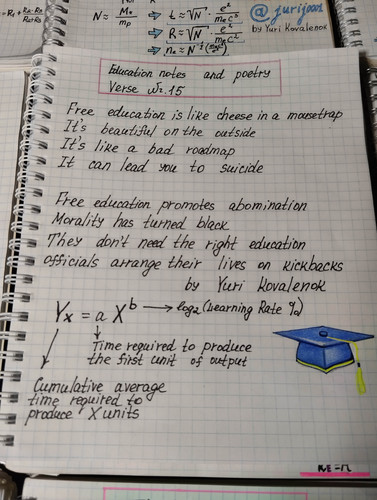 N ≈ Mo/mp ⇒ t ≈ √N · e²/mec³
⇒ R ≈ √N · e²/mec²
@jurijoo1
by Yuri Kovalenok
Education notes and poetry
Verse №.15
Free education is like cheese in a mousetrap
It's beautiful on the outside
It's like a bad roadmap
It can lead you to suicide
Free education promotes abomination
Morality has turned black
They don't need the right education
officials arrange their lives on kickbacks
by Yuri Kovalenok
Yx = a X^b → log2 (Learning Rate %)
Time required to produce
the first unit of output
Cumulative average
time required to
produce X units